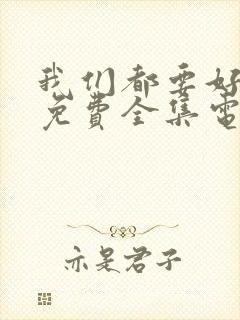 我们都要好
免费全集電
亦是君子